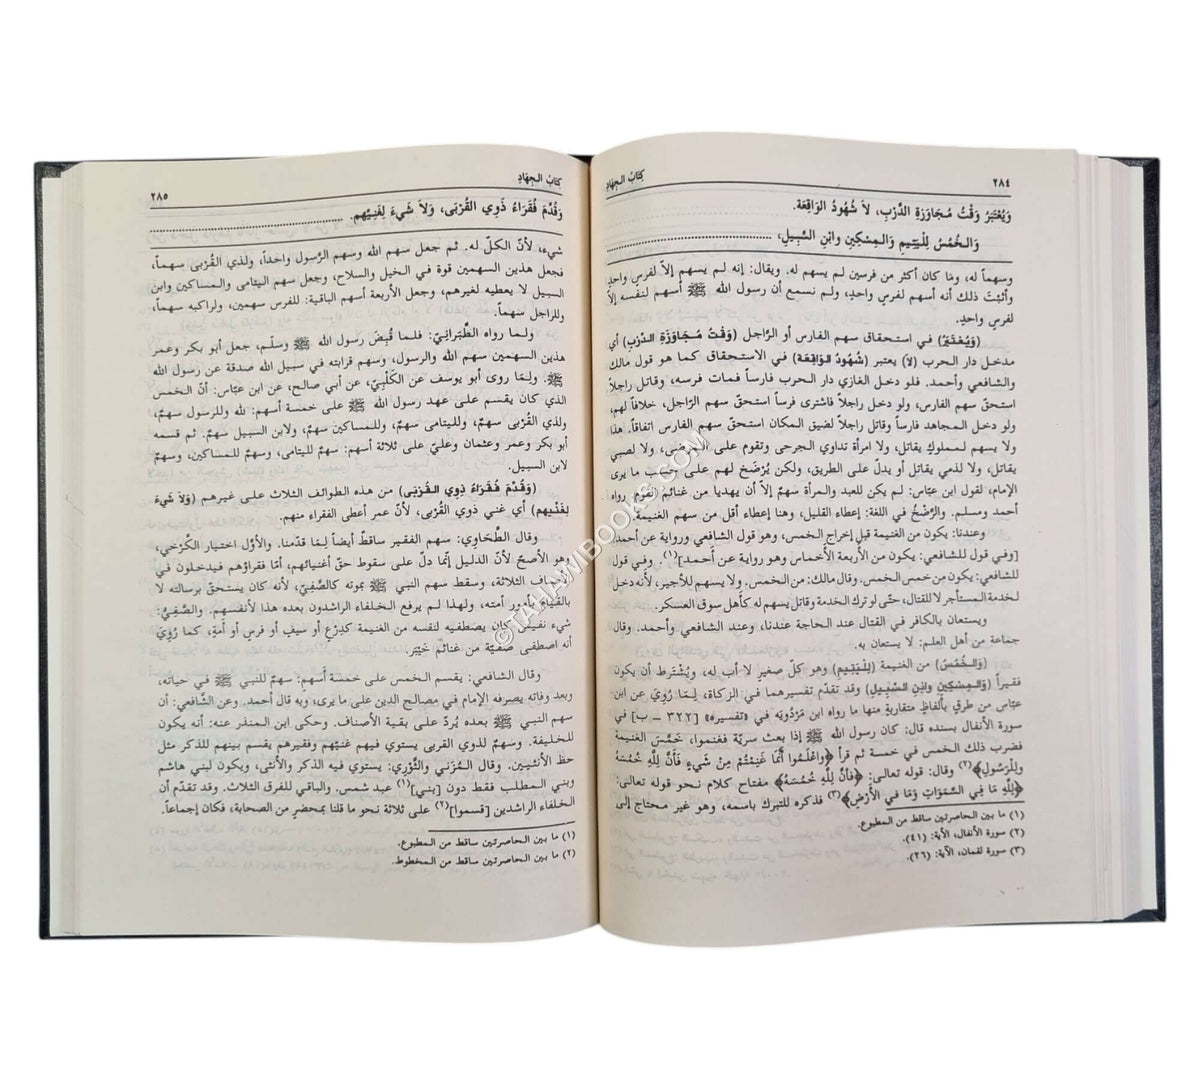 ٢٨٤
كِتَابُ الجِهَادِ
وَيُعْتَبَرُ وَقْتُ مُجَاوَزَةِ الدَّرْبِ، لَا شُهُودُ الوَاقِعَة.
وَالخُمُسُ لِلْيَتِيمِ وَالمِسْكِينِ وابْنِ السَّبِيلِ،
وسهماً له، ومَا كان أكثر من فرسين لم يسهم له. ويقال: إنه لم يسهم إلاَّ لفرس واحدٍ
وأثبتُ ذلك أنه أسهم لفرسٍ واحدٍ، ولم نسمع أن رسول الله ﷺ أسهم لنفسه إلاَّ
لفرسٍ واحدٍ.
(وَيُعْتَبَرُ) في استحقاق سهم الفارس أو الرَّاجل (وَقْتُ مُجَاوَزَةِ الدَّرْبِ) أي
مدخل دار الحرب (لَا) يعتبر (شُهُودُ الوَاقِعَة) في الاستحقاق كما هو قول مالك
والشافعي وأحمد. فلو دخل الغازي دار الحرب فارساً فمات فرسه، وقاتل راجلاً
استحقّ سهم الفارس، ولو دخل راجلاً فاشترى فرساً استحقّ سهم الرَّاجل، خلافاً لهم،
ولو دخل المجاهد فارساً وقاتل راجلاً لضيق المكان استحقّ سهم الفارس اتفاقاً. هذا
ولا يسهم لمملوكٍ يقاتل، ولا امرأة تداوي الجرحى وتقوم على المرضى، ولا لصبي
يقاتل، ولا لذمي يقاتل أو يدلّ على الطريق، ولكن يُرْضَخ لهم على حسب ما يرى
الإمام، لقول ابن عبّاس: لم يكن للعبد والمرأة سهمٌ إلاَّ أن يهديا من غنائم القوم. رواه
أحمد ومسلم. والرَّضْخُ في اللغة: إعطاء القليل، وهنا إعطاء أقل من سهم الغنيمة.
وعندنا: يكون من الغنيمة قبل إخراج الخمس، وهو قول الشافعي ورواية عن أحمد:
[وفي قول للشافعي: يكون من الأربعة الأخماس وهو رواية عن أحمد](١). وفي قول
للشافعي: يكون من خمس الخمس. وقال مالك: من الخمس. ولا يسهم للأجير، لأنه دخل
لخدمة المستأجر لا للقتال، حتّى لو ترك الخدمة وقاتل يسهم له كأهل سوق العسكر.
ويستعان بالكافر في القتال عند الحاجة عندنا، وعند الشافعي وأحمد. وقال
جماعة من أهل العلم: لا يستعان به.
(وَالخُمُسُ) من الغنيمة (لِلْيَتِيمِ) وهو كلّ صغيرٍ لا أب له، ويُشْتَرط أن يكون
فقيراً (وَالمِسْكِينِ وابْنِ السَّبِيلِ) وقد تقدّم تفسيرهما في الزكاة، لِمَا رُوِيَ عن ابن
عبّاس من طرقٍ بألفاظٍ متقاربةٍ منها ما رواه ابن مَرْدُويَه في «تفسيره» [٣٢٢ - ب] في
سورة الأنفال بسنده قال: كان رسول الله ﷺ إذا بعث سريّة فغنموا، خَمَّسَ الغنيمة
فضرب ذلك الخمس في خمسة ثم قرأ ﴿واعْلَمُوا أَنَّمَا غَنِمْتُمْ مِنْ شَيءٍ فَأَنَّ لِلَّهِ خُمُسَهُ
ولِلْرَسُولِ﴾(٢) وقال: قوله تعالى: ﴿فأَنَّ لِلَّهِ خُمُسَهُ﴾ مفتاح كلام نحو قوله تعالى:
﴿لِلَّهِ مَا فِي السَّمَوَاتِ وَمَا في الأَرْضِ﴾(٣) فذكره للتبرك باسمه، وهو غير محتاج إلى
(١) ما بين الحاصرتين ساقط من المطبوع.
(٢) سورة الأنفال، الآية: (٤١).
(٣) سورة لقمان، الآية: (٢٦).
كِتَابُ الجِهَادِ
٢٨٥
وَقُدِّمَ فُقَرَاءُ ذَوِي القُرْبَى، وَلاَ شَيءَ لِغَنِيِّهِم.
شيء، لأنّ الكلّ له. ثم جعل سهم الله وسهم الرَّسول واحداً، ولذي القُرْبى سهماً،
فجعل هذين السهمين قوة في الخيل والسلاح، وجعل سهم اليتامى والمساكين وابن
السبيل لا يعطيه لغيرهم، وجعل الأربعة أسهم الباقية: للفرس سهمين، ولراكبه سهماً،
وللراجل سهماً.
ولما رواه الطَّبَرانِيّ: فلما قُبِضَ رسول الله ﷺ وسلّم، جعل أبو بكر وعمر
هذين السهمين سهم الله والرسول، وسهم قرابته في سبيل الله صدقة عن رسول الله
ﷺ. ولِمَا روى أبو يوسف عن الكَلْبِيّ، عن أبي صالح، عن ابن عبّاس: أنّ الخمس
الذي كان يقسم على عهد رسول الله ﷺ على خمسة أسهم: لله وللرسول سهمٌ،
ولذي القُرْبى سهمٌ، ولليتامى سهمٌ، وللمساكين سهمٌ، ولابن السبيل سهمٌ. ثم قسمه
أبو بكر وعمر وعثمان وعليّ على ثلاثة أسهم: سهمٌ لليتامى، وسهمٌ للمساكين، وسهمٌ
لابن السبيل.
(وَقُدِّمَ فُقَرَاءُ ذَوِي القُرْبَى) من هذه الطوائف الثلاث على غيرهم (وَلاَ شَيءَ
لِغَنِيِّهِم) أي غني ذوي القُرْبى، لأنّ عمر أعطى الفقراء منهم.
وقال الطَّحَاوي: سهم الفقير ساقطٌ أيضاً لِمَا قدّمنا. والأوَّل اختيار الكَرْخي،
وهو الأصحّ لأنّ الدليل إنَّما دلّ على سقوط حقّ أغنيائهم، أمّا فقراؤهم فيدخلون في
الأصناف الثلاثة، وسقط سهم النبي ﷺ بموته كالصَّفِيّ، لأنه كان يستحقّ برسالته لا
بالقيام بأمور أمته، ولهذا لم يرفع الخلفاء الراشدون بعده هذا لأنفسهم. والصَّفِيُّ:
شيء نفيسٌ كان يصطفيه لنفسه من الغنيمة كدِرْع أو سيفٍ أو فرسٍ أو أَمةٍ، كما رُوِيَ
أنه اصطفى صفيّة من غنائم خَيْبَر.
وقال الشافعي: يقسم الخمس على خمسة أسهم: سهمٌ للنبي ﷺ في حياته،
وبعد وفاته يصرفه الإمام في مصالح الدين على ما يرى، وبه قال أحمد. وعن الشَّافعي: أن
سهم النبي ﷺ بعده يُردّ على بقية الأصناف. وحكى ابن المنذر عنه: أنه يكون
للخليفة. وسهمٌ لذوي القربى يستوي فيهم غنيُّهم وفقيرهم يقسم بينهم للذكر مثل
حظ الأنثيين. وقال المُزَني والثَّوْرِي: يستوي فيه الذكر والأنثى، ويكون لبني هاشم
وبني المطلب فقط دون [بني](١) عبد شمس. والباقي للفرق الثلاث. وقد تقدّم أن
الخلفاء الراشدين [قسموا](٢) على ثلاثة نحو ما قلنا بمحضرٍ من الصحابة، فكان إجماعاً.
(١) ما بين الحاصرتين ساقط من المطبوع.
(٢) ما بين الحاصرتين ساقط من المخطوط.
©TAHAWIBOOKS.COM